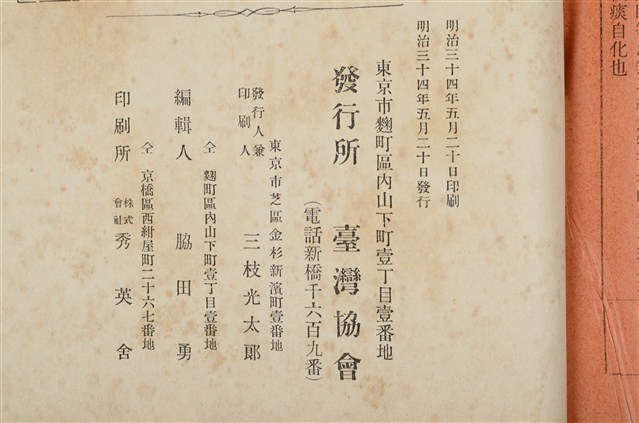 痰自化也
明治三十四年五月二十日印刷
明治三十四年五月二十日發行
東京市麴町區內山下町壹丁目壹番地
發行所 臺灣協會
(電話新橋千六百九番)
東京市芝區金杉新濱町壹番地
發行人兼印刷人 三枝光太郞
仝 麴町區內山下町壹丁目壹番地
編輯人 脇田勇
仝 京橋區西紺屋町二十六七番地
印刷所 株式會社 秀英舍